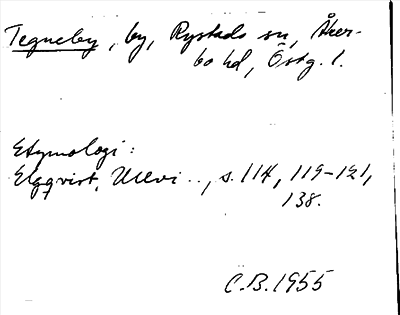 Tegneby, by, Rystads sn, Åker-
bo hd, Östg. l.
Etymologi:
Elgqvist, Ullvi.., s. 114, 119-121,
138.
C.B. 1955